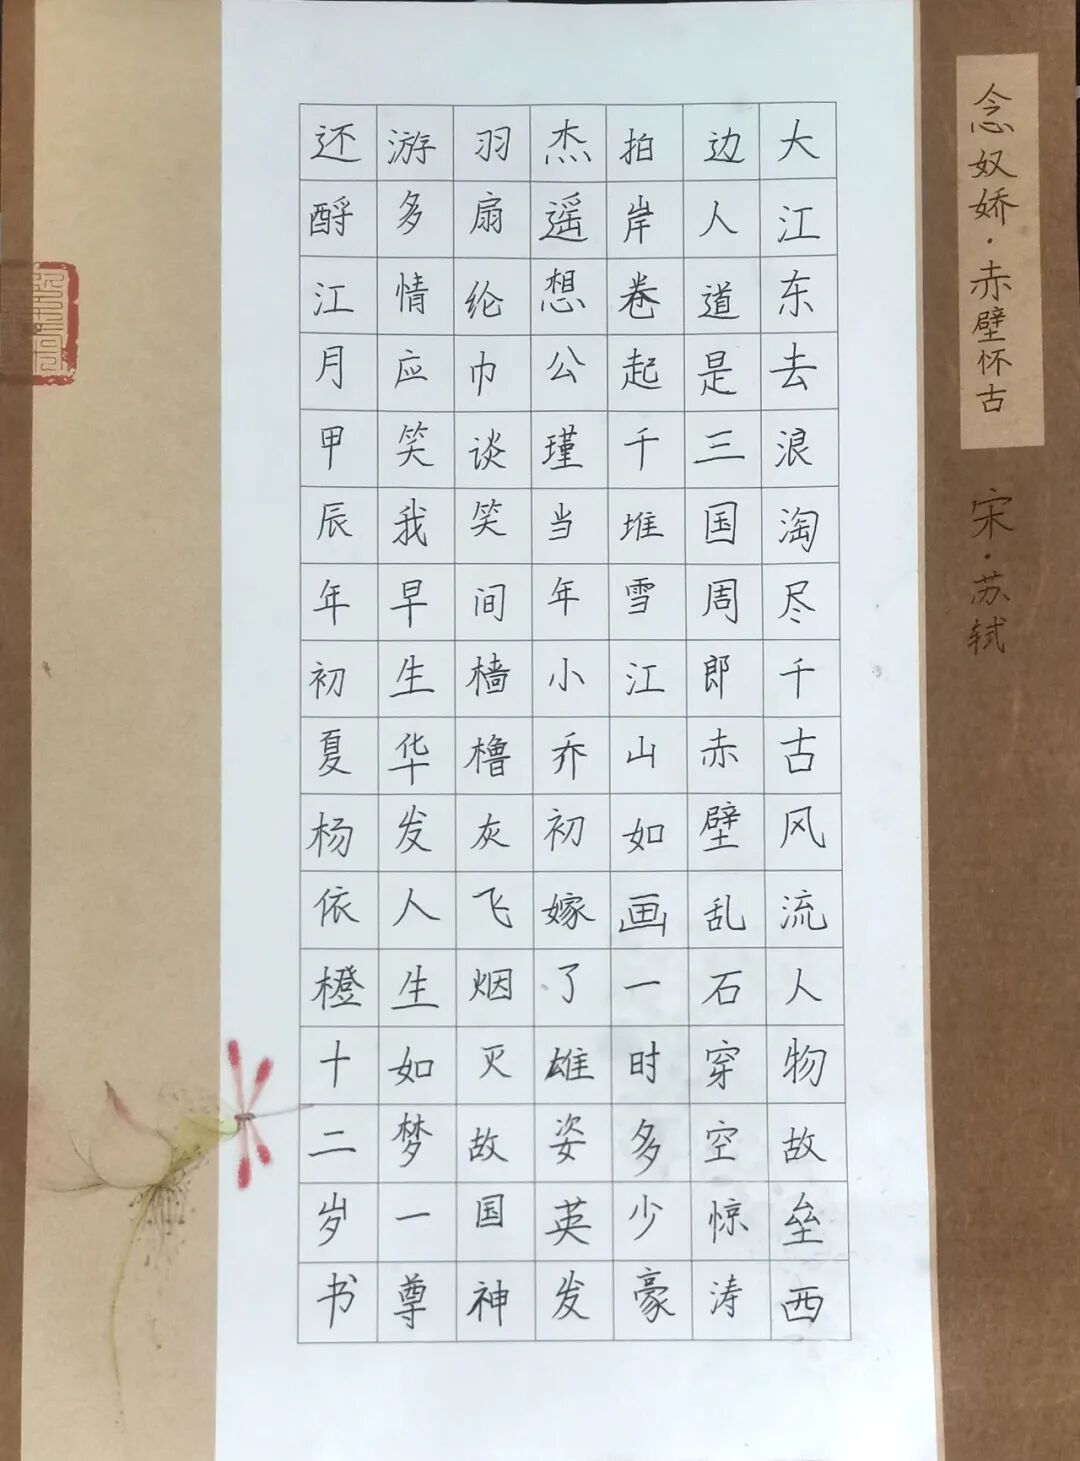 念奴娇·赤壁怀古
宋·苏轼
大江东去浪淘尽千古风流人物故垒西
边人道是三国周郎赤壁乱石穿空惊涛
拍岸卷起千堆雪江山如画一时多少豪
杰遥想公瑾当年小乔初嫁了雄姿英发
羽扇纶巾谈笑间樯橹灰飞烟灭故国神
游多情应笑我早生华发人生如梦一尊
还酹江月甲辰年初夏杨依橙十二岁书